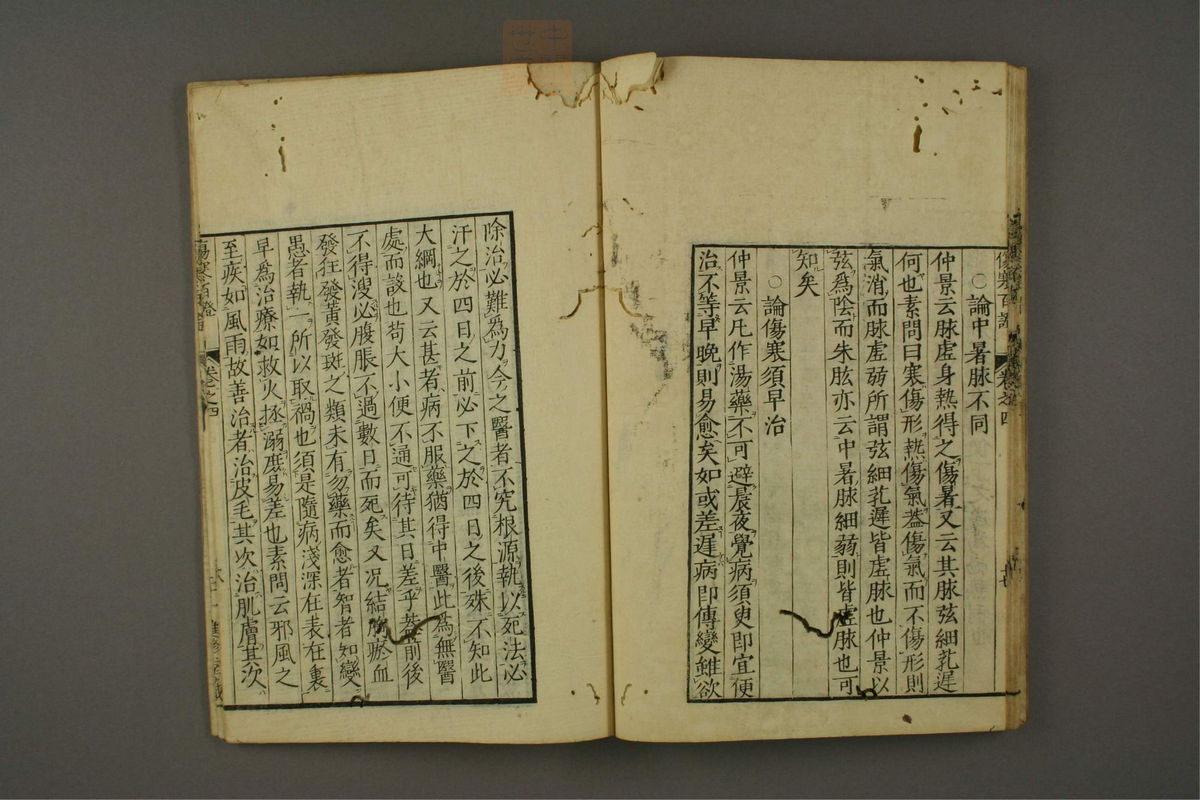 傷寒百證
卷之四
○論中暑脉不同
仲景云脉虛身熱得之傷暑又云其脉弦細芤遲
何也素問曰寒傷形熱傷氣蓋傷氣而不傷形則
氣消而脉虛弱所謂弦細芤遲皆虛脉也仲景以
弦爲陰而朱肱亦云中暑脉細弱則皆虛脉也可
知矣
○論傷寒須早治
仲景云凡作湯藥不可避晨夜覺病須臾即宜便
治不等早晚則易愈矣如或差遲病即傳變雖欲
除治必難爲力今之醫者不究根源執以死法必
汗之於四日之前必下之於四日之後殊不知此
大綱也又云甚者病不服藥猶得中醫此爲無醫
處而設也苟大小便不通可待其日差乎若前後
不得溲必腹脹不過數日而死矣又況結胷瘀血
發狂發黃發斑之類未有勿藥而愈者智者知變
愚者執一所以取禍也須是隨病淺深在表在裏
早爲治療如救火拯溺庶易差也素問云邪風之
至疾如風雨故善治者治皮毛其次治肌膚其次
傷寒百證
卷之四